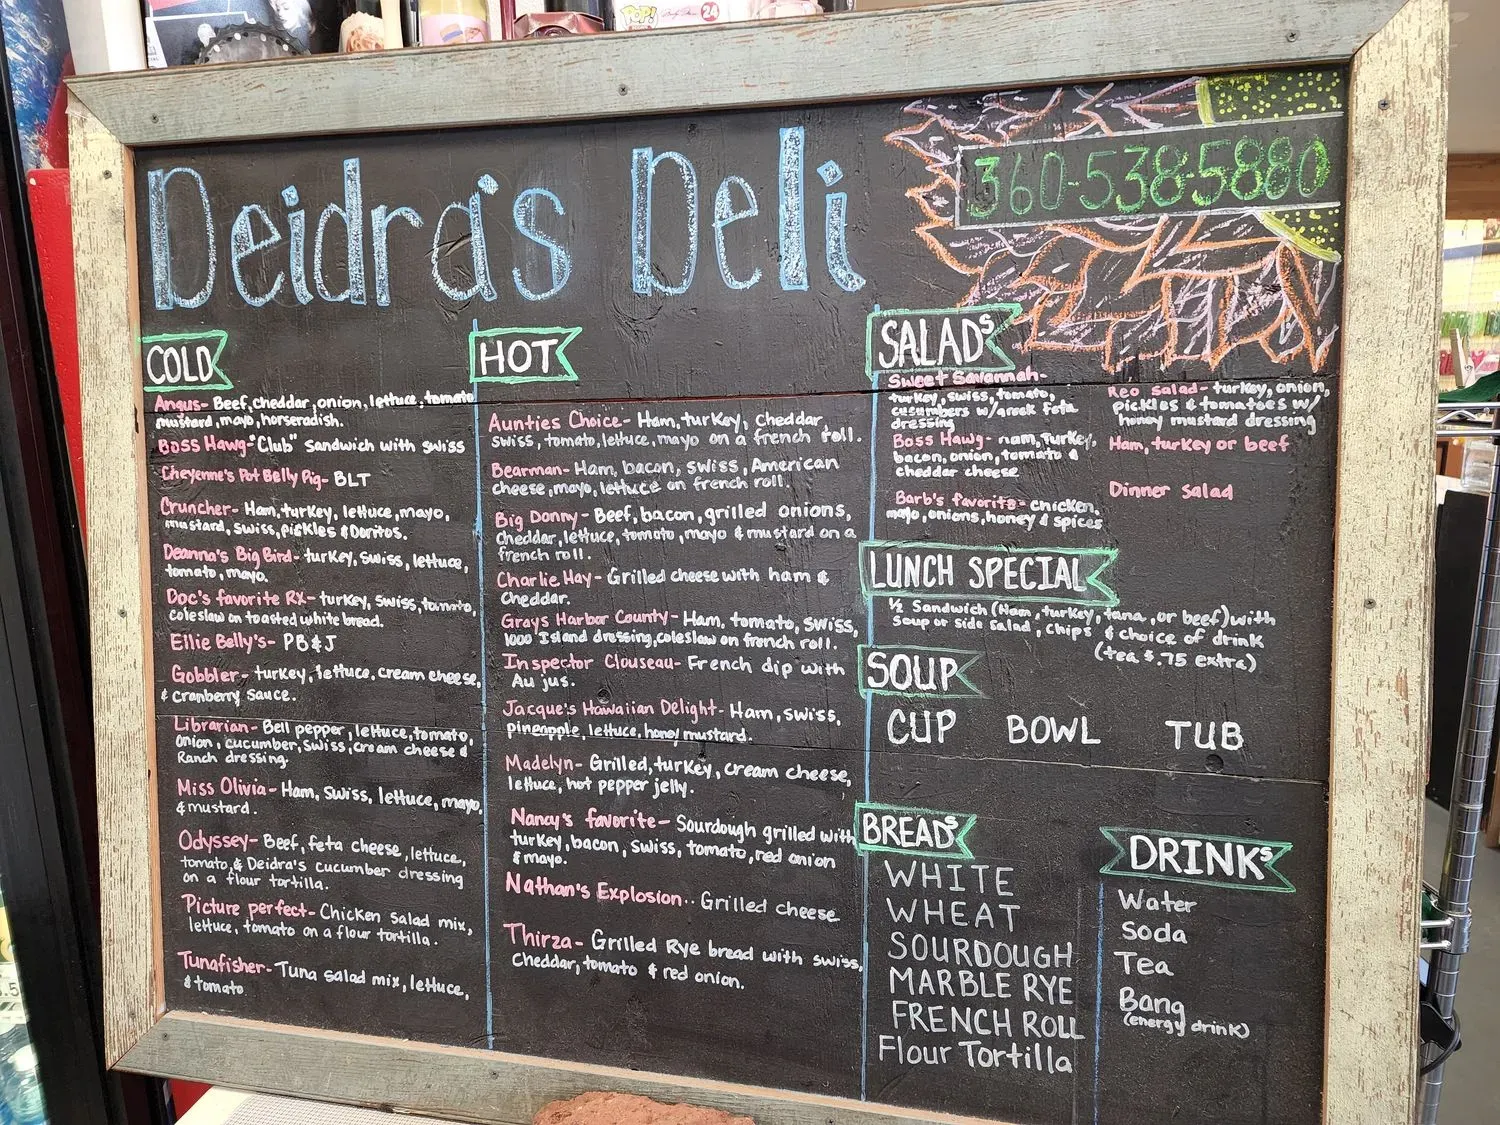 POP!
24
Deidra's Deli
360-538-5880
COLD
Angus- Beef, cheddar, onion, lettuce, tomato
mustard, mayo, horseradish.
Boss Hawg-"Club" sandwich with swiss
Cheyenne's Pot Belly Pig- BLT
Cruncher- Ham, turkey, lettuce, mayo,
mustard, swiss, pickles & Doritos.
Deanna's Big Bird- turkey, swiss, lettuce,
tomato, mayo.
Doc's favorite RX- turkey, swiss, tomato,
coleslaw on toasted white bread.
Ellie Belly's- PB&J
Gobbler- turkey, lettuce, cream cheese,
& Cranberry Sauce.
Librarian- Bell pepper, lettuce, tomato,
onion, cucumber, swiss, cream cheese &
Ranch dressing.
Miss Olivia- Ham, Swiss, lettuce, mayo,
& mustard.
Odyssey- Beef, feta cheese, lettuce,
tomato, & Deidra's cucumber dressing
on a flour tortilla.
Picture perfect- Chicken salad mix,
lettuce, tomato on a flour tortilla.
Tunafisher- Tuna salad mix, lettuce,
& tomato
HOT
Aunties Choice- Ham, turkey, cheddar,
swiss, tomato, lettuce, mayo on a french roll.
Bearman- Ham, bacon, swiss, American
cheese, mayo, lettuce on french roll.
Big Donny- Beef, bacon, grilled onions,
cheddar, lettuce, tomato, mayo & mustard on a
french roll.
Charlie Hay- Grilled cheese with ham &
Cheddar.
Grays Harbor County- Ham, tomato, swiss,
1000 Island dressing, coleslaw on french roll.
Inspector Clouseau- French dip with
Au jus.
Jacque's Hawaiian Delight- Ham, swiss,
pineapple, lettuce, honey mustard.
Madelyn- Grilled, turkey, cream cheese,
lettuce, hot pepper jelly.
Nancy's favorite- Sourdough grilled with
turkey, bacon, swiss, tomato, red onion
& mayo.
Nathan's Explosion.. Grilled cheese
Thirza- Grilled Rye bread with swiss,
Cheddar, tomato & red onion.
SALADs
Sweet Savannah-
turkey, swiss, tomato,
cucumbers w/greek feta
dressing
Boss Hawg- ham, turkey,
bacon, onion, tomato &
cheddar cheese
Barb's favorite- chicken,
mayo, onions, honey & spices
Reo Salad- turkey, onion,
pickles & tomatoes w/
honey mustard dressing
Ham, turkey or beef
Dinner salad
LUNCH SPECIAL
½ Sandwich (Ham, turkey, tuna, or beef) with
Soup or side salad, chips & choice of drink
(tea $.75 extra)
SOUP
CUP BOWL TUB
BREADs
WHITE
WHEAT
SOURDOUGH
MARBLE RYE
FRENCH ROLL
Flour Tortilla
DRINKs
Water
Soda
Tea
Bang
(energy drink)